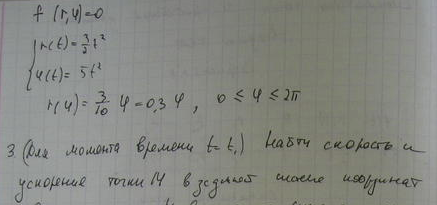 f (r,φ)=0
r(t)=3/2 t²
φ(t)= 5t²
r(φ)= 3/10 φ=0,3 φ , 0 ≤ φ ≤ 2π
3. (Для момента времени t=t₁) Найти скорость и
ускорение точки М в заданной системе координат